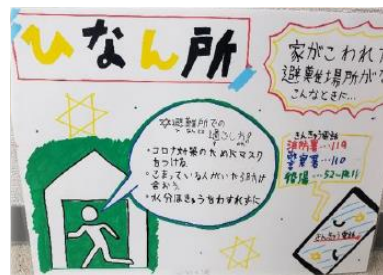 ひなん所
家がこわれた
避難場所が
こんなときに…
☆避難所での
過ごし方
・コロナ対策のためにマスク
をつける
・こまっている人がいたら助け
合おう
・水分ほきゅうをわすれずに
きんきゅう電話
消防署…119
警察署…110
役場…52-1211
きんきゅう電話